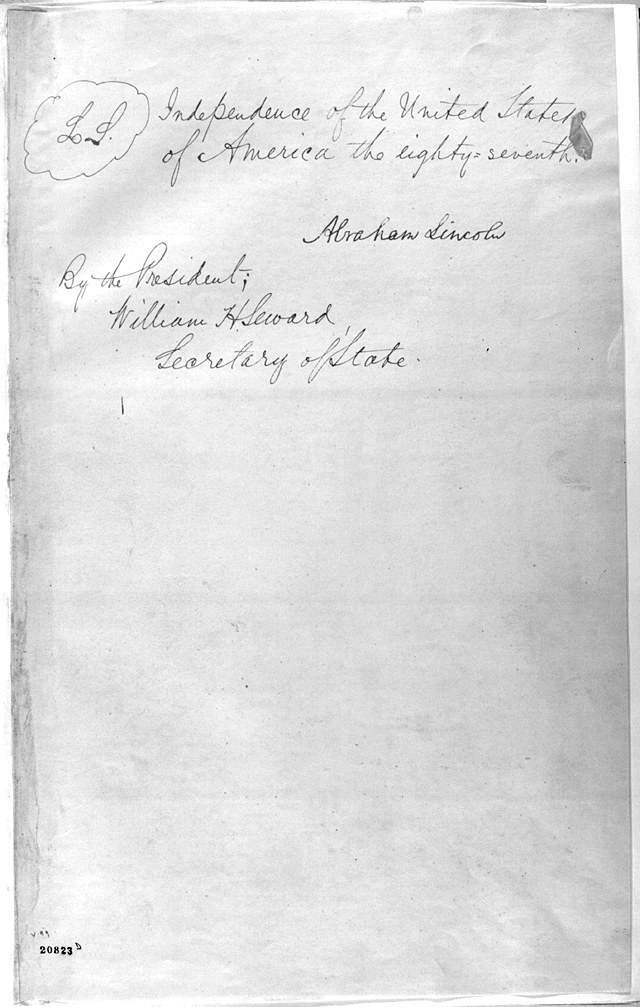 L.S.
Independence of the United States
of America the eighty=seventh.
Abraham Lincoln
By the President;
William H Seward,
Secretary of State.
20823 D